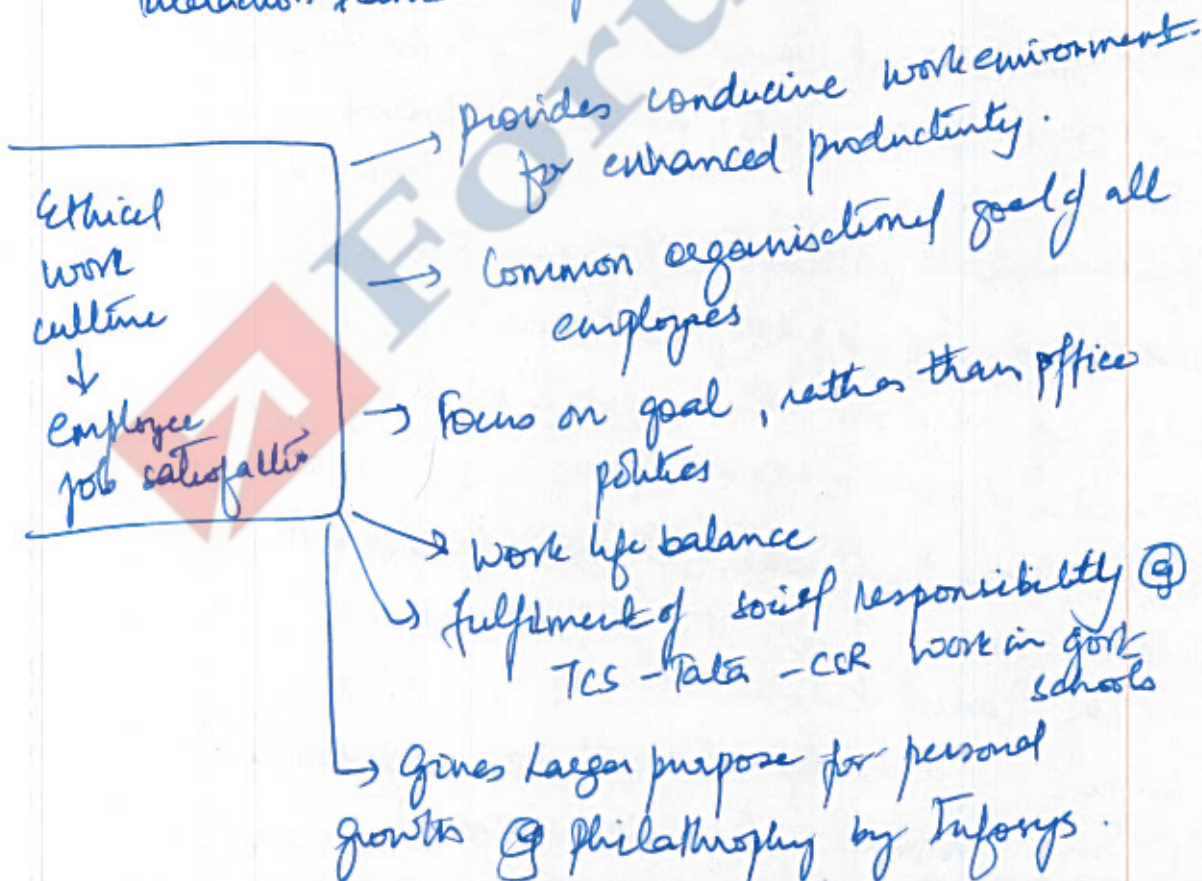 Foru
Ethical
work
culture
↓
employee
job satisfaction
→ provides conducive work environment.
for enhanced productivity.
→ Common organisational goal of all
employees
→ Focus on goal, rather than office
politics
→ work life balance
→ fulfilment of social responsibility eg
TCS - Tata - CSR work in govt
schools
→ Gives Larger purpose for personal
growth eg philathrophy by Infosys.